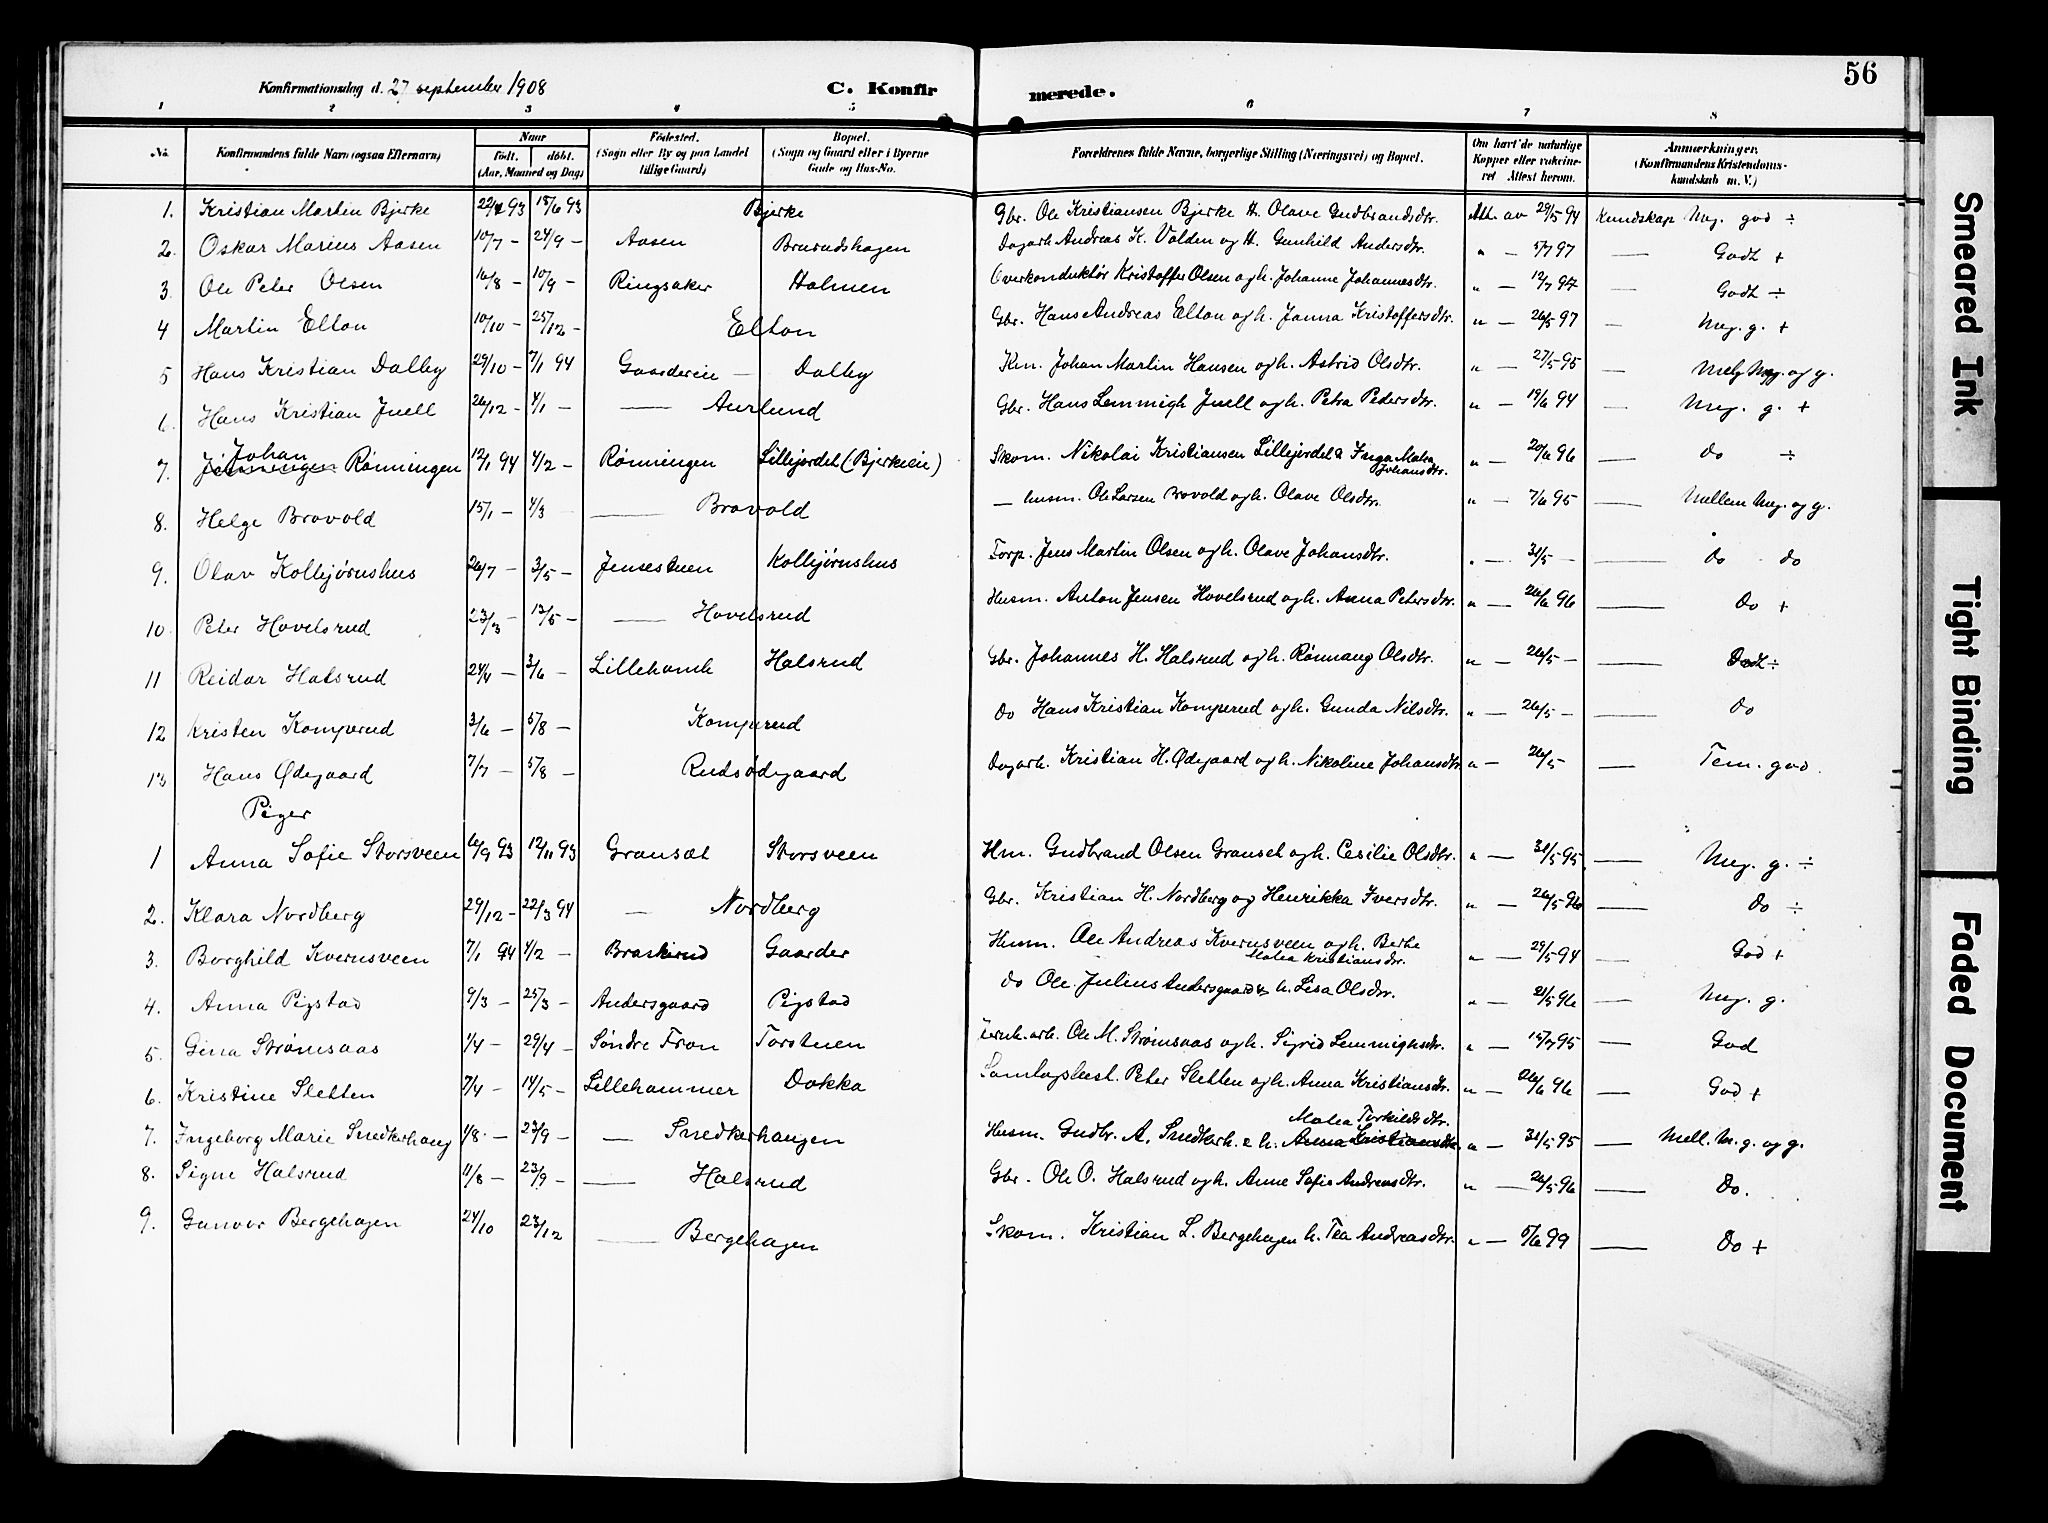 56
Konfirmationsdag d. 27 september 1908 C. Konfirmerede.
1 2 3 4 5 6 7 8
No. Konfirmandens fulde Navn (ogsaa Efternavn) Naar født. døbt. (Aar, Maaned og Dag) Fødested. (Sogn eller By og paa Landet tillige Gaard) Bopæl. (Sogn og Gaard eller i Byerne Gade og Hus-No. Forældrenes fulde Navne, borgerlige Stilling (Næringsvei) og Bopæl. Om havt de naturlige Kopper eller vakcineret Attest herom. Anmærkninger. (Konfirmandens Kristendomskundskab m. V.)
1. Kristian Martin Bjerke 93 18/6 93 Bjerke Gbr. Ole Kristiansen Bjerke H. Olave Gudbrandsdtr. Att. av 29/5 94 Kundskap Meg. god ÷
2. Oskar Marius Aasen 10/7 – 24/9 – Aasen Brurudshagen Dagarb Andreas K. Volden og H. Gunhild Andersdtr. " – 5/7 97 — Godt +
3. Ole Peter Olsen 16/8 – 10/9 – Ringsaker Holmen Overkonduktør Kristoffer Olsen og h. Johanne Johannesdtr. " – 12/7 97 — Godt ÷
4 Martin Elton 10/10 – 25/12 – Elton Gbr. Hans Andreas Elton og h. Janna Kristoffersdtr. " – 26/5 97 — Meg. g. +
5 Hans Kristian Dalby 29/10 – 7/1 94 Gaardereie — Dalby Km. Johan Martin Hansen og h. Astrid Olsdtr. " – 27/5 95 — Mel Meg. og g.
6. Hans Kristian Juell 26/12 – 4/1 – — Aurlund Gbr. Hans Lemmigh Juell og h. Petra Pedersdtr. " – 19/6 94 — Meg. g. +
7. Johan Rønningen 12/1 94 4/2 – Rønningen Lillejordet (Bjerkeeie) Skom. Nikolai Kristiansen Lillejordet & Inga Malea Johansdtr. " – 20/6 96 — do ÷
8. Helge Brovold 15/1 – 4/3 — Brovold — husm. Ole Larsen Brovold og h. Olave Olsdtr. " – 7/6 95 — Mellem Meg. og g.
9. Olav Kolbjørnshus 26/7 – 3/5 – Jensestuen Kolbjørnshus Forp. Jens Martin Olsen og h. Olave Johansdtr. " – 31/5 – — do do
10. Peter Hovelsrud 23/3 – 13/5 – — Hovelsrud Husm. Anton Jensen Hovelsrud og h. Anna Petersdtr. " – 26/6 96 — do +
11 Reidar Halsrud 24/4 – 3/6 – Lillehamb Halsrud Gbr. Johannes H. Halsrud og h. Rønnaug Olsdtr. " – 26/5 – — Godt ÷
12 Kristen Kompverud 3/6 – 5/8 – Kompverud do Hans Kristian Kompverud og h. Gunda Nilsdtr. " – 26/5 – — do
13 Hans Ødegaard 7/7 – 5/8 – Rudsødegaard Dagarb. Kristian H. Ødegaard og h. Nikoline Johansdtr " – 26/5 – — Tem. god.
Piger
1 Anna Sofie Storsveen 16/9 93 12/11 93 Gransæt Storsveen Hm. Gudbrand Olsen Granset og h. Cesilie Olsdtr. " – 31/5 95 — Meg. g. ÷
2. Klara Nordberg 29/12 – 22/3 94 — Nordberg Gbr. Kristian H. Nordberg og Henrikka Iversdtr. " – 26/5 96 — do ÷
3. Borghild Kvernsveen 7/1 94 4/2 – Braskerud Gaarder Husm. Ole Andreas Kvernsveen og h. Berte Malea Kristiansdtr. " – 29/5 94 — God +
4. Anna Pigstad 9/3 – 25/3 – Andersgaard Pigstad do Ole Julius Andersgaard & h. Lisa Olsdtr. " – 21/5 96 — Meg. g.
5. Gina Strømsaas 1/4 – 29/4 – Søndre Fron Torstuen Jernb.arb. Ole M. Strømsaas og h. Sigrid Lemmighsdtr. " – 15/7 95 — God
6. Kristine Sletten 7/4 – 14/5 – Lillehammer Dokka Samlagsbest. Peter Sletten og h. Anna Kristiansdtr. " – 26/6 96 — God +
7. Ingeborg Marie Snedkerhaug 1/8 – 23/9 – — Snedkerhaugen Husm. Gudbr. A. Snedkerh. & h. Anna Kristiansdtr. Malea Torkildsdtr. " – 31/5 95 — Mell. M. g. og g.
8. Signe Halsrud 11/8 – 23/9 – — Halsrud Gbr. Ole O. Halsrud og h. Anne Sofie Andreasdtr. " – 26/5 96 — Do.
9. Gunvor Bergehagen 24/10 23/12 — Bergehagen Skom. Kristian L. Bergehagen h. Tea Andreasdtr. " – 5/6 99 — Do +
Smeared Ink
Tight Binding
Faded Document